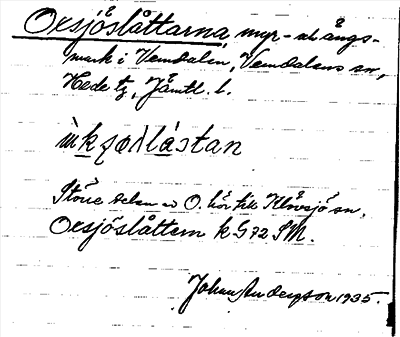 Oxsjöslåttarna, myr- o. ängs-
mark i Vemdalen, Vemdalens sn,
Hede tg, Jämtl. l.
Större delen av O. hör till Klövsjö sn.
Oxsjöslåttern k G 72 SM.
Johan Anderzson 1935.